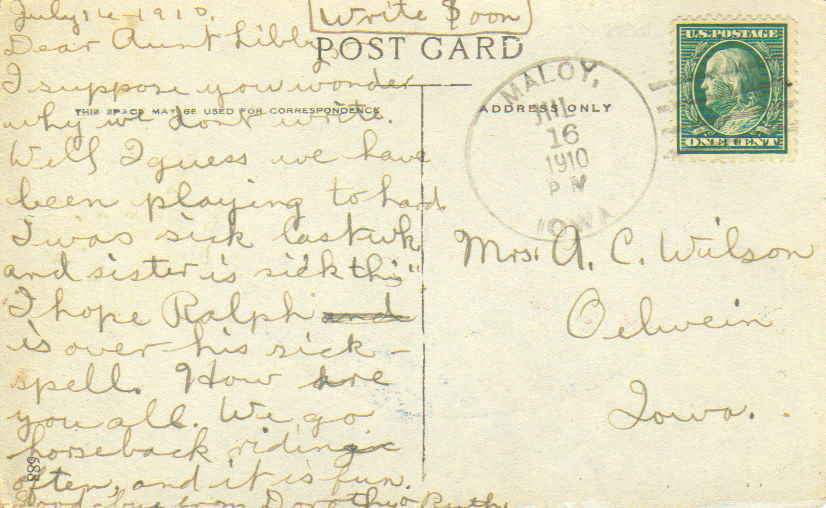 July 14-1910.
Write Soon
Dear Aunt Libby,
POST CARD
I suppose you wonder
THIS SPACE MAY BE USED FOR CORRESPONDENCE
why we dont write.
Well I guess we have
been playing to hard.
I was sick last wk.
and sister is sick this "
I hope Ralph and
is over his sick-
spell. How are
you all. We go
horseback riding
often, and it is fun.
Good-bye from Dorothy & Ruth
ADDRESS ONLY
MALOY,
JUL
16
1910
PM
IOWA
U.S. POSTAGE
ONE CENT
Mrs. A. C. Wilson
Oelwein
Iowa.